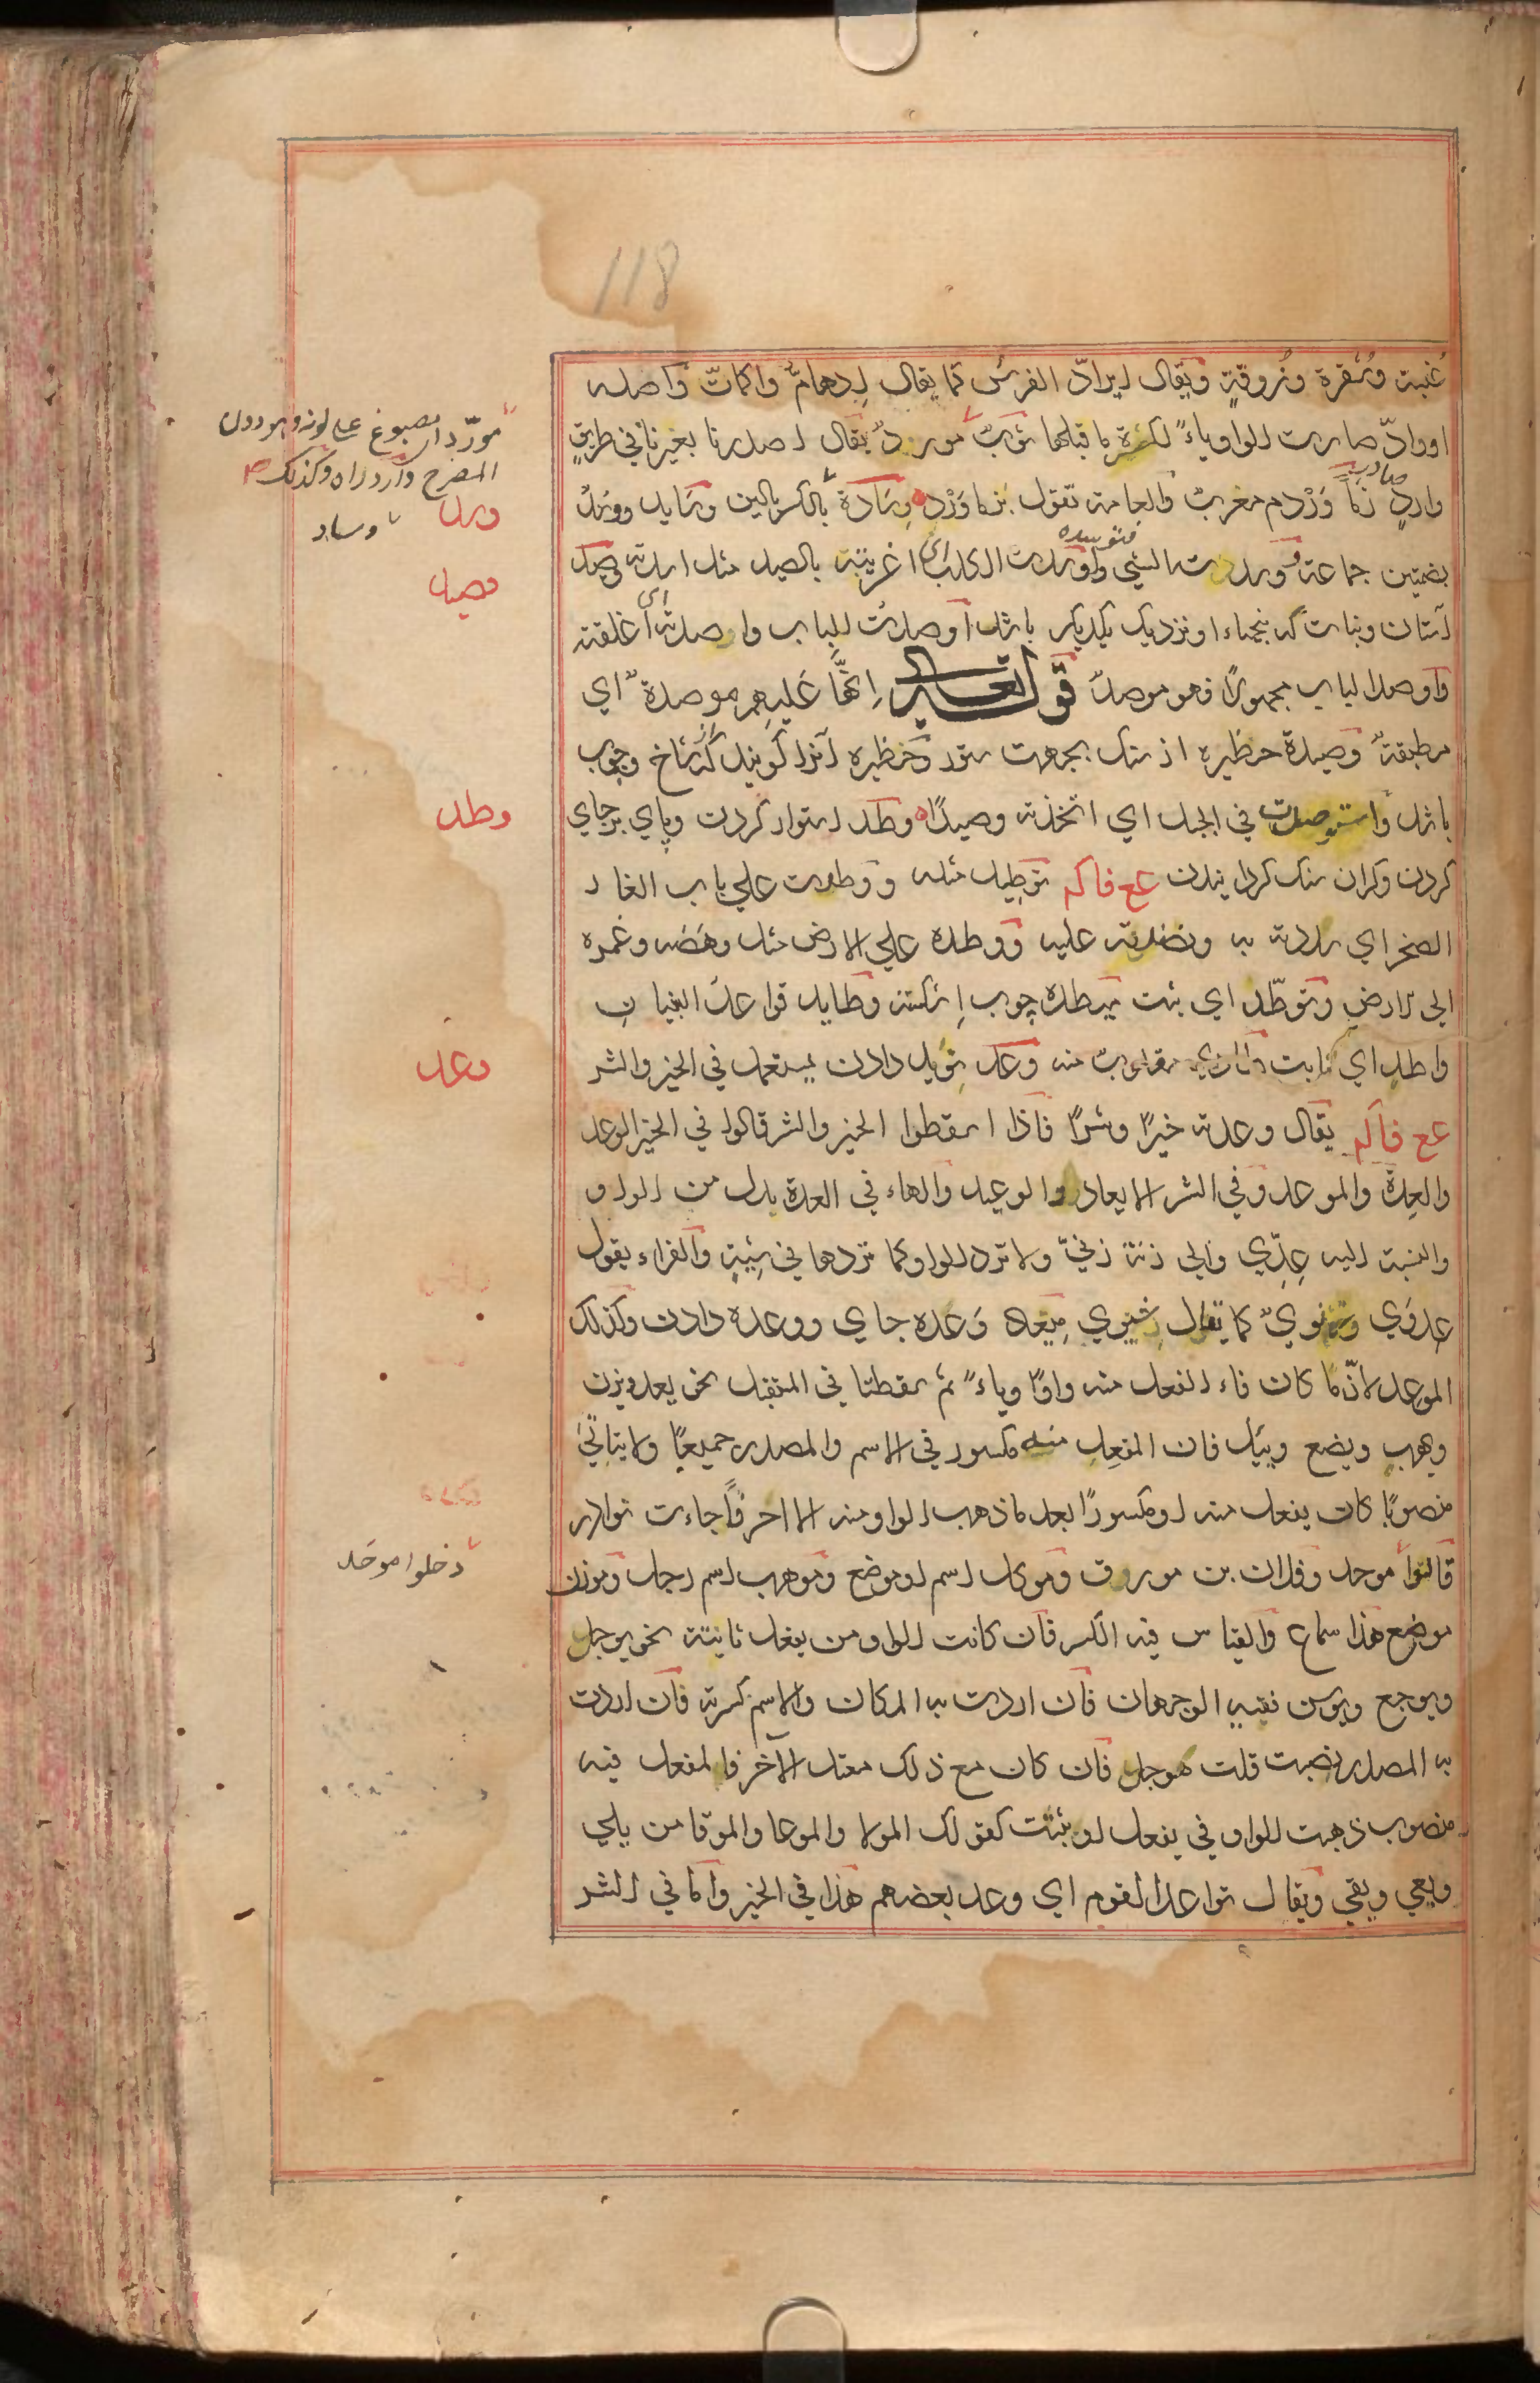 118
غبسة وشقرة وزرقة ويقال ايرادّ الفرس كما يقال ادهامّ واكماتّ واصله
اوورادّ صارت الواو ياءً لكسرة ما قبلها ثوبٌ مورد يقال اصدرنا بغيرنا في طريقٍ
واردٍ صادرٍ زُماوَرْد معرب والعامة تقول بزماوَرْد وِسادة بالكسر بالين وسايد ووسد
بضمتين جماعة ووسدت الشي فتوسده واوسدت الكلب اي اغريته بالصيد مثل اسدته وصيد
آستان ونبات كه بنجهاء او نزديك يكديكر باشد اوصدت الباب واصدته اي اغلقته
واوصد الباب مجهولًا فهو موصدٌ قوله تعالى انها عليهم موصدة اي
مطبقة وصيدة حظيره از سنك بجهت ستور وحظيره آنرا كويند كز شاخ وچوب
باشد واستوصدت في الجبل اي اتخذته وصيدًا وطد استوار كردن وپاي برجاي
كردن وكران سنك كردانيدن ع ع فاكم توطيد مثله ووطدت علي باب الغار
الصخر اي سددته به ونضدته عليه ووطده علي الارض مثل وهصه وغمزه
الي الارض وتوطّد اي ثبت ميطده چوب وطايد قواعد البنيان
واطد اي ثابت مقلوب منه وعد نويد دادن يستعمل في الخير والشر
ع ع فاكم يقال وعدته خيرًا وشرًا فاذا اسقطوا الخير والشر قالوا في الخير الوعد
والعدة والموعد وفي الشر الايعاد والوعيد والهاء في العدة بدل من الواو
والنسبة اليه عِدِيّ والي زنة زنيّ ولا ترد الواو كما تردها في شيةٍ والفراء يقول
عِدَوي وزنويٌ كما يقال شيوي ميعاد وعده جاي ووعده دادن وكذلك
الموعد لانّ ما كان فاء الفعل منه واوًا وياءً ثم سقطتا في المستقبل نحو يعد ويزن
ويهب ويضع ويئل فان المفعِل منه مكسور في الاسم والمصدر جميعًا ولا
منصوبًا كان يفعل منه او مكسورًا بعد ما ذهب الواو منه الا احرفًا جاءت نوادر
قالوا موحد وفلان بن مورق وموكل اسم او موضع وموهب اسم رجل وموزن
موضع هذا سماع والقياس فيه الكسر فان كانت الواو من يفعل ثابتة نحو يوجل
ويوجع ويوسن ففيه الوجهان فان اردت به المكان والاسم كسرته فان اردت
به المصدر نصبت قلت موجل فان كان مع ذلك معتل الآخر فالمفعل فيه
منصوب ذهبت الواو في يفعل او ثبتت كقولك المولا والموعا والموقا من يلي
ويعي ويقي ويقال تواعد القوم اي وعد بعضهم هذا في الخير واما في الشر
مورّد اي مصبوغ علي لونه وهو دون
المضرج وكذلك
وسد
وساد
وصيد
وطد
وعد
دخلوا موحَد